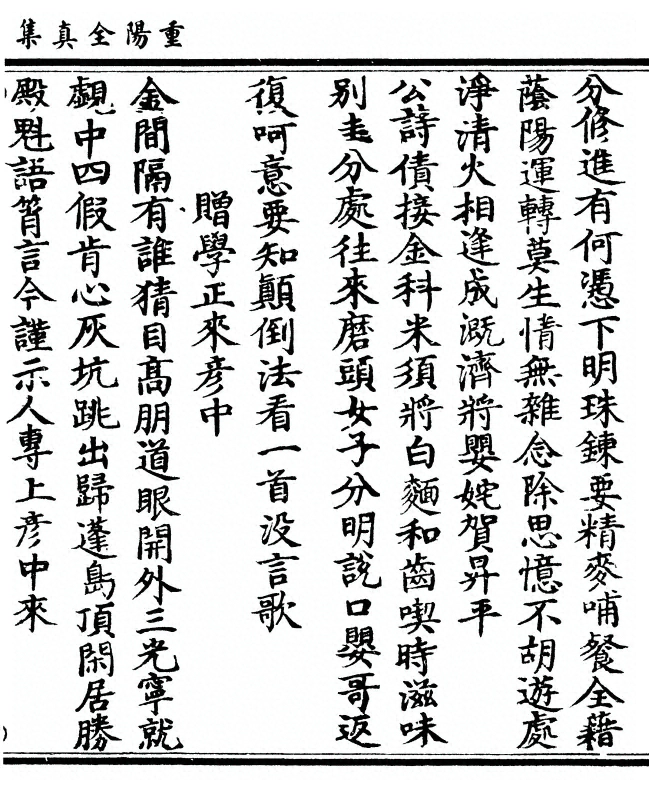 重陽全真集
分修進有何憑下明珠鍊要精麥哺餐全藉
蔭陽運轉莫生情無雜念除思憶不胡遊處
淨清火相逢成溉濟將嬰姹賀昇平
公詩債接金科米須將白麵和齒喫時滋味
别圭分處往來磨頭女子分明說口嬰哥返
復呵意要知顛倒法看一首没言歌
贈學正來彥中
金間隔有誰猜目高朋道眼開外三光寧就
覷中四假肯心灰坑跳出歸蓬島頂閑居勝
殿魁語筲言今謹示人專上彥中來